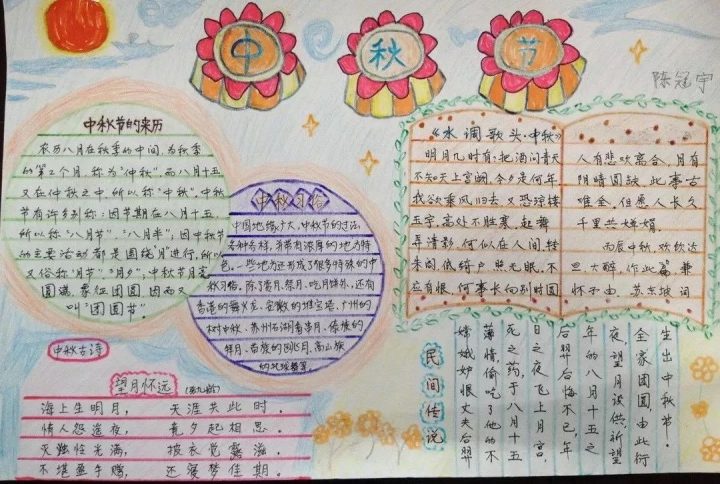 中秋节
陈冠宇
中秋节的来历
农历八月在秋季的中间,为秋季
的第2个月,称为"仲秋",而八月十五
又在仲秋之中,所以称"中秋"。中秋
节有许多别称:因节期在八月十五,
所以称"八月节"、"八月半";因中秋节
的主要活动都是围绕"月"进行,所以
又俗称"月节"、"月夕",中秋节月亮
圆满,象征团圆,因而又
叫"团圆节"。
中秋习俗
中国地缘广大,中秋节的习俗,
各种各样,并带有浓厚的地方特
色。一些地方还形成了很多特殊的中
秋习俗。除了赏月、祭月、吃月饼外,还有
香港的舞火龙、安徽的堆宝塔、广州的
树中秋、苏州石湖看串月、傣族的
拜月、苗族的跳月、高山族
《水调歌头·中秋》
明月几时有:把酒问青天
不知天上宫阙,今夕是何年
我欲乘风归去,又恐琼楼
玉宇,高处不胜寒,起舞
弄清影,何似在人间,转
朱阁,低绮户,照无眠,不
应有恨,何事长向别时圆
人有悲欢离合,月有
阴晴圆缺,此事古
难全,但愿人长久
千里共婵娟。
丙辰中秋,欢饮达
旦,大醉,作此篇,兼
怀子由,苏东坡词
中秋古诗
望月怀远
海上生明月,天涯共此时。
情人怨遥夜,竟夕起相思。
灭独怜光满,披衣觉露滋。
不堪盈手赠,还寝梦佳期。
民间传说
嫦娥妒恨丈夫后羿
薄情偷吃了他的不
死之药于八月十五
日之夜飞上月宫,
后羿后悔不已,年
年的八月十五之
夜,望月设供,祈望
全家团圆,由此衍
生出中秋节。